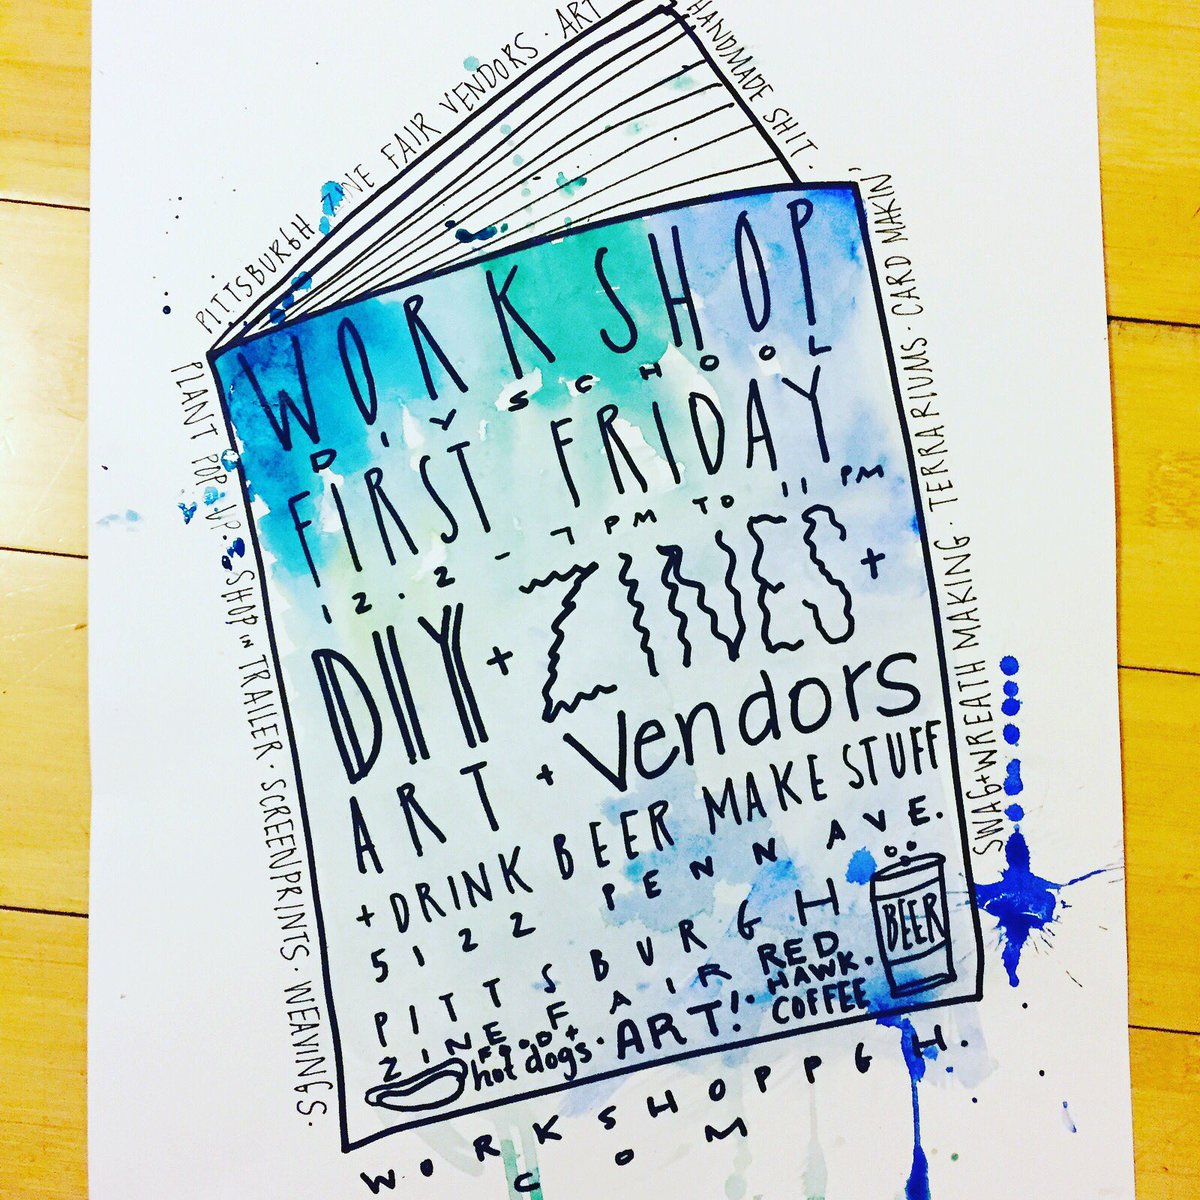 PITTSBURGH ZINE FAIR VENDORS · ART
HANDMADE SHIT.
WORKSHOP
DIY SCHOOL
FIRST FRIDAY
12.2 - 7 PM TO 11 PM
DIY + ZINES +
ART + Vendors
+ DRINK BEER MAKE STUFF
5122 PENN AVE.
PITTSBURGH
ZINE FAIR
RED HAWK.
COFFEE
FOOD +
hot dogs.
ART!.
BEER
WORKSHOPPGH.
COM
PLANT POP UP. SHOP IN TRAILER · SCREENPRINTS · WEAVINGS ·
SWAG + WREATH MAKING · TERRARIUMS · CARD MAKIN'